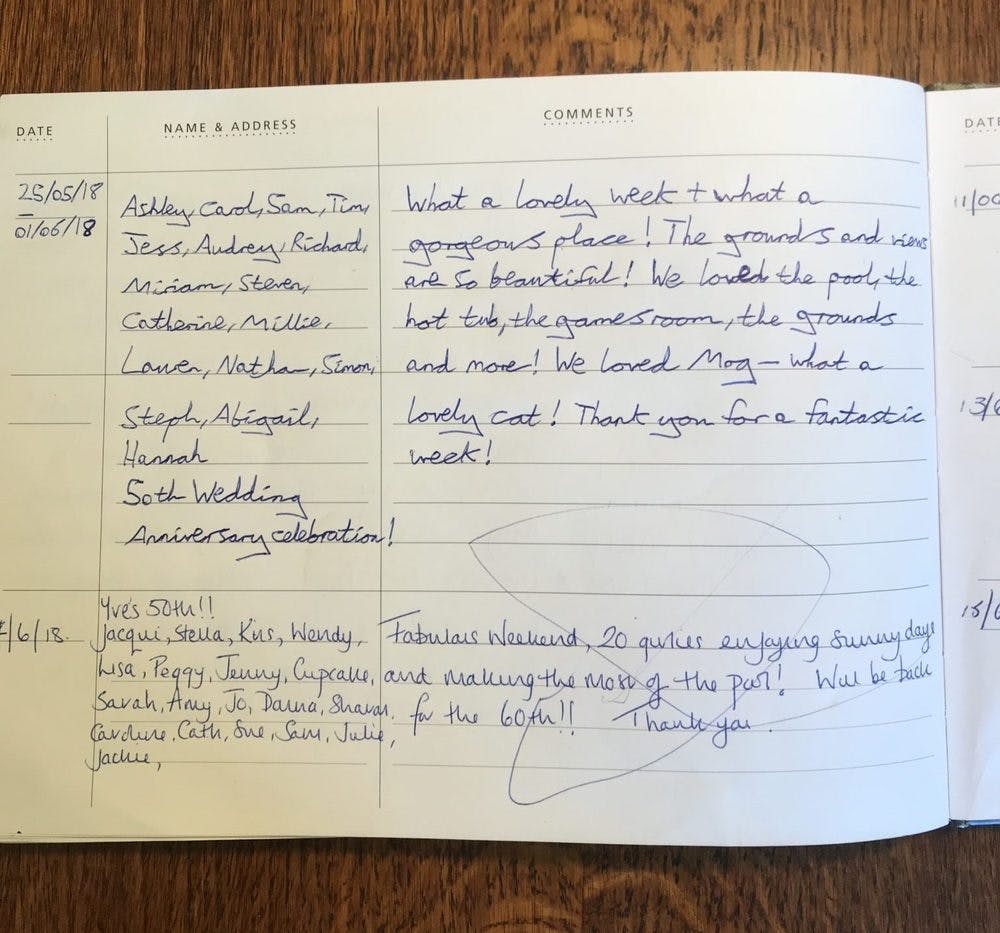 DATE NAME & ADDRESS COMMENTS DATE
25/05/18
–
01/06/18
Ashley, Carol, Sam, Tim,
Jess, Audrey, Richard,
Miriam, Steven,
Catherine, Millie,
Lauren, Nathan, Simon,
Steph, Abigail,
Hannah
50th Wedding
Anniversary celebration!
What a lovely week + what a
gorgeous place! The grounds and views
are so beautiful! We loved the pool, the
hot tub, the games room, the grounds
and more! We loved Mog – what a
lovely cat! Thank you for a fantastic
week!
/6/18.
Yve's 50th!!
Jacqui, Stella, Kris, Wendy,
Lisa, Peggy, Jenny, Cupcake,
Sarah, Amy, Jo, Danna, Sharon,
Caroline, Cath, Sue, Sam, Julie,
Jackie,
Fabulous Weekend, 20 girlies enjoying sunny days
and making the most of the pool! Will be back
for the 60th!! Thank you.
11/0
13/6
15/6